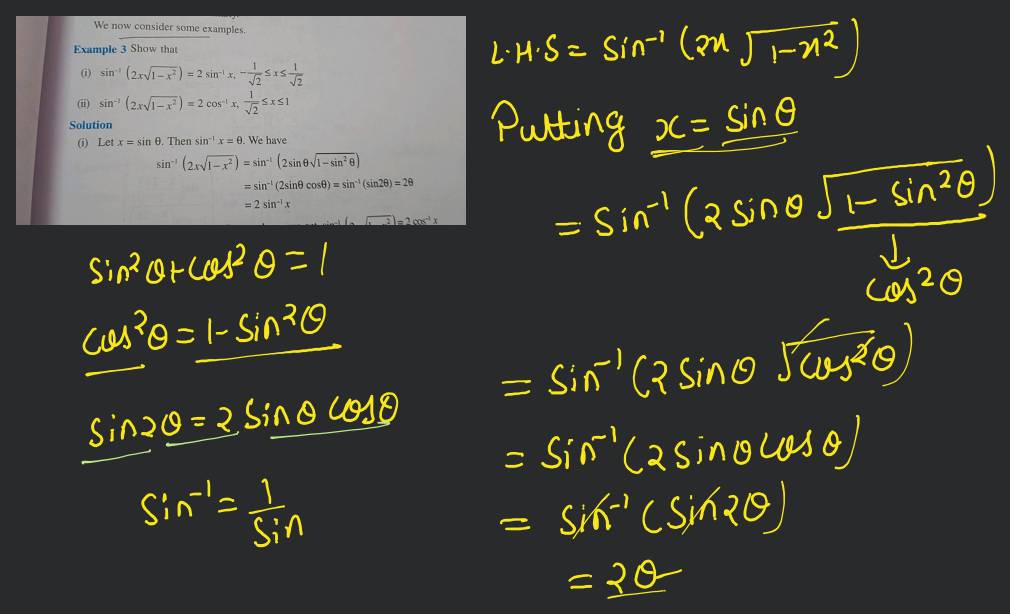 We now consider some examples.
Example 3 Show that
(i) sin⁻¹ (2x√1−x²) = 2 sin⁻¹ x, −1/√2 ≤ x ≤ 1/√2
(ii) sin⁻¹ (2x√1−x²) = 2 cos⁻¹ x, 1/√2 ≤ x ≤ 1
Solution
(i) Let x = sin θ. Then sin⁻¹ x = θ. We have
sin⁻¹ (2x√1−x²) = sin⁻¹ (2sinθ√1−sin²θ)
= sin⁻¹ (2sinθ cosθ) = sin⁻¹ (sin2θ) = 2θ
= 2 sin⁻¹ x
= 2 cos⁻¹ x
sin²θ + cos²θ = 1
cos²θ = 1 − sin²θ
sin2θ = 2 sinθ cosθ
sin⁻¹ = 1/sin
L.H.S = sin⁻¹ (2x √1−x²)
Putting x = sinθ
= sin⁻¹ (2 sinθ √1− sin²θ)
↓
cos²θ
= sin⁻¹ (2 sinθ √cos²θ)
= sin⁻¹ (2 sinθ cosθ)
= sin⁻¹ (sin2θ)
= 2θ